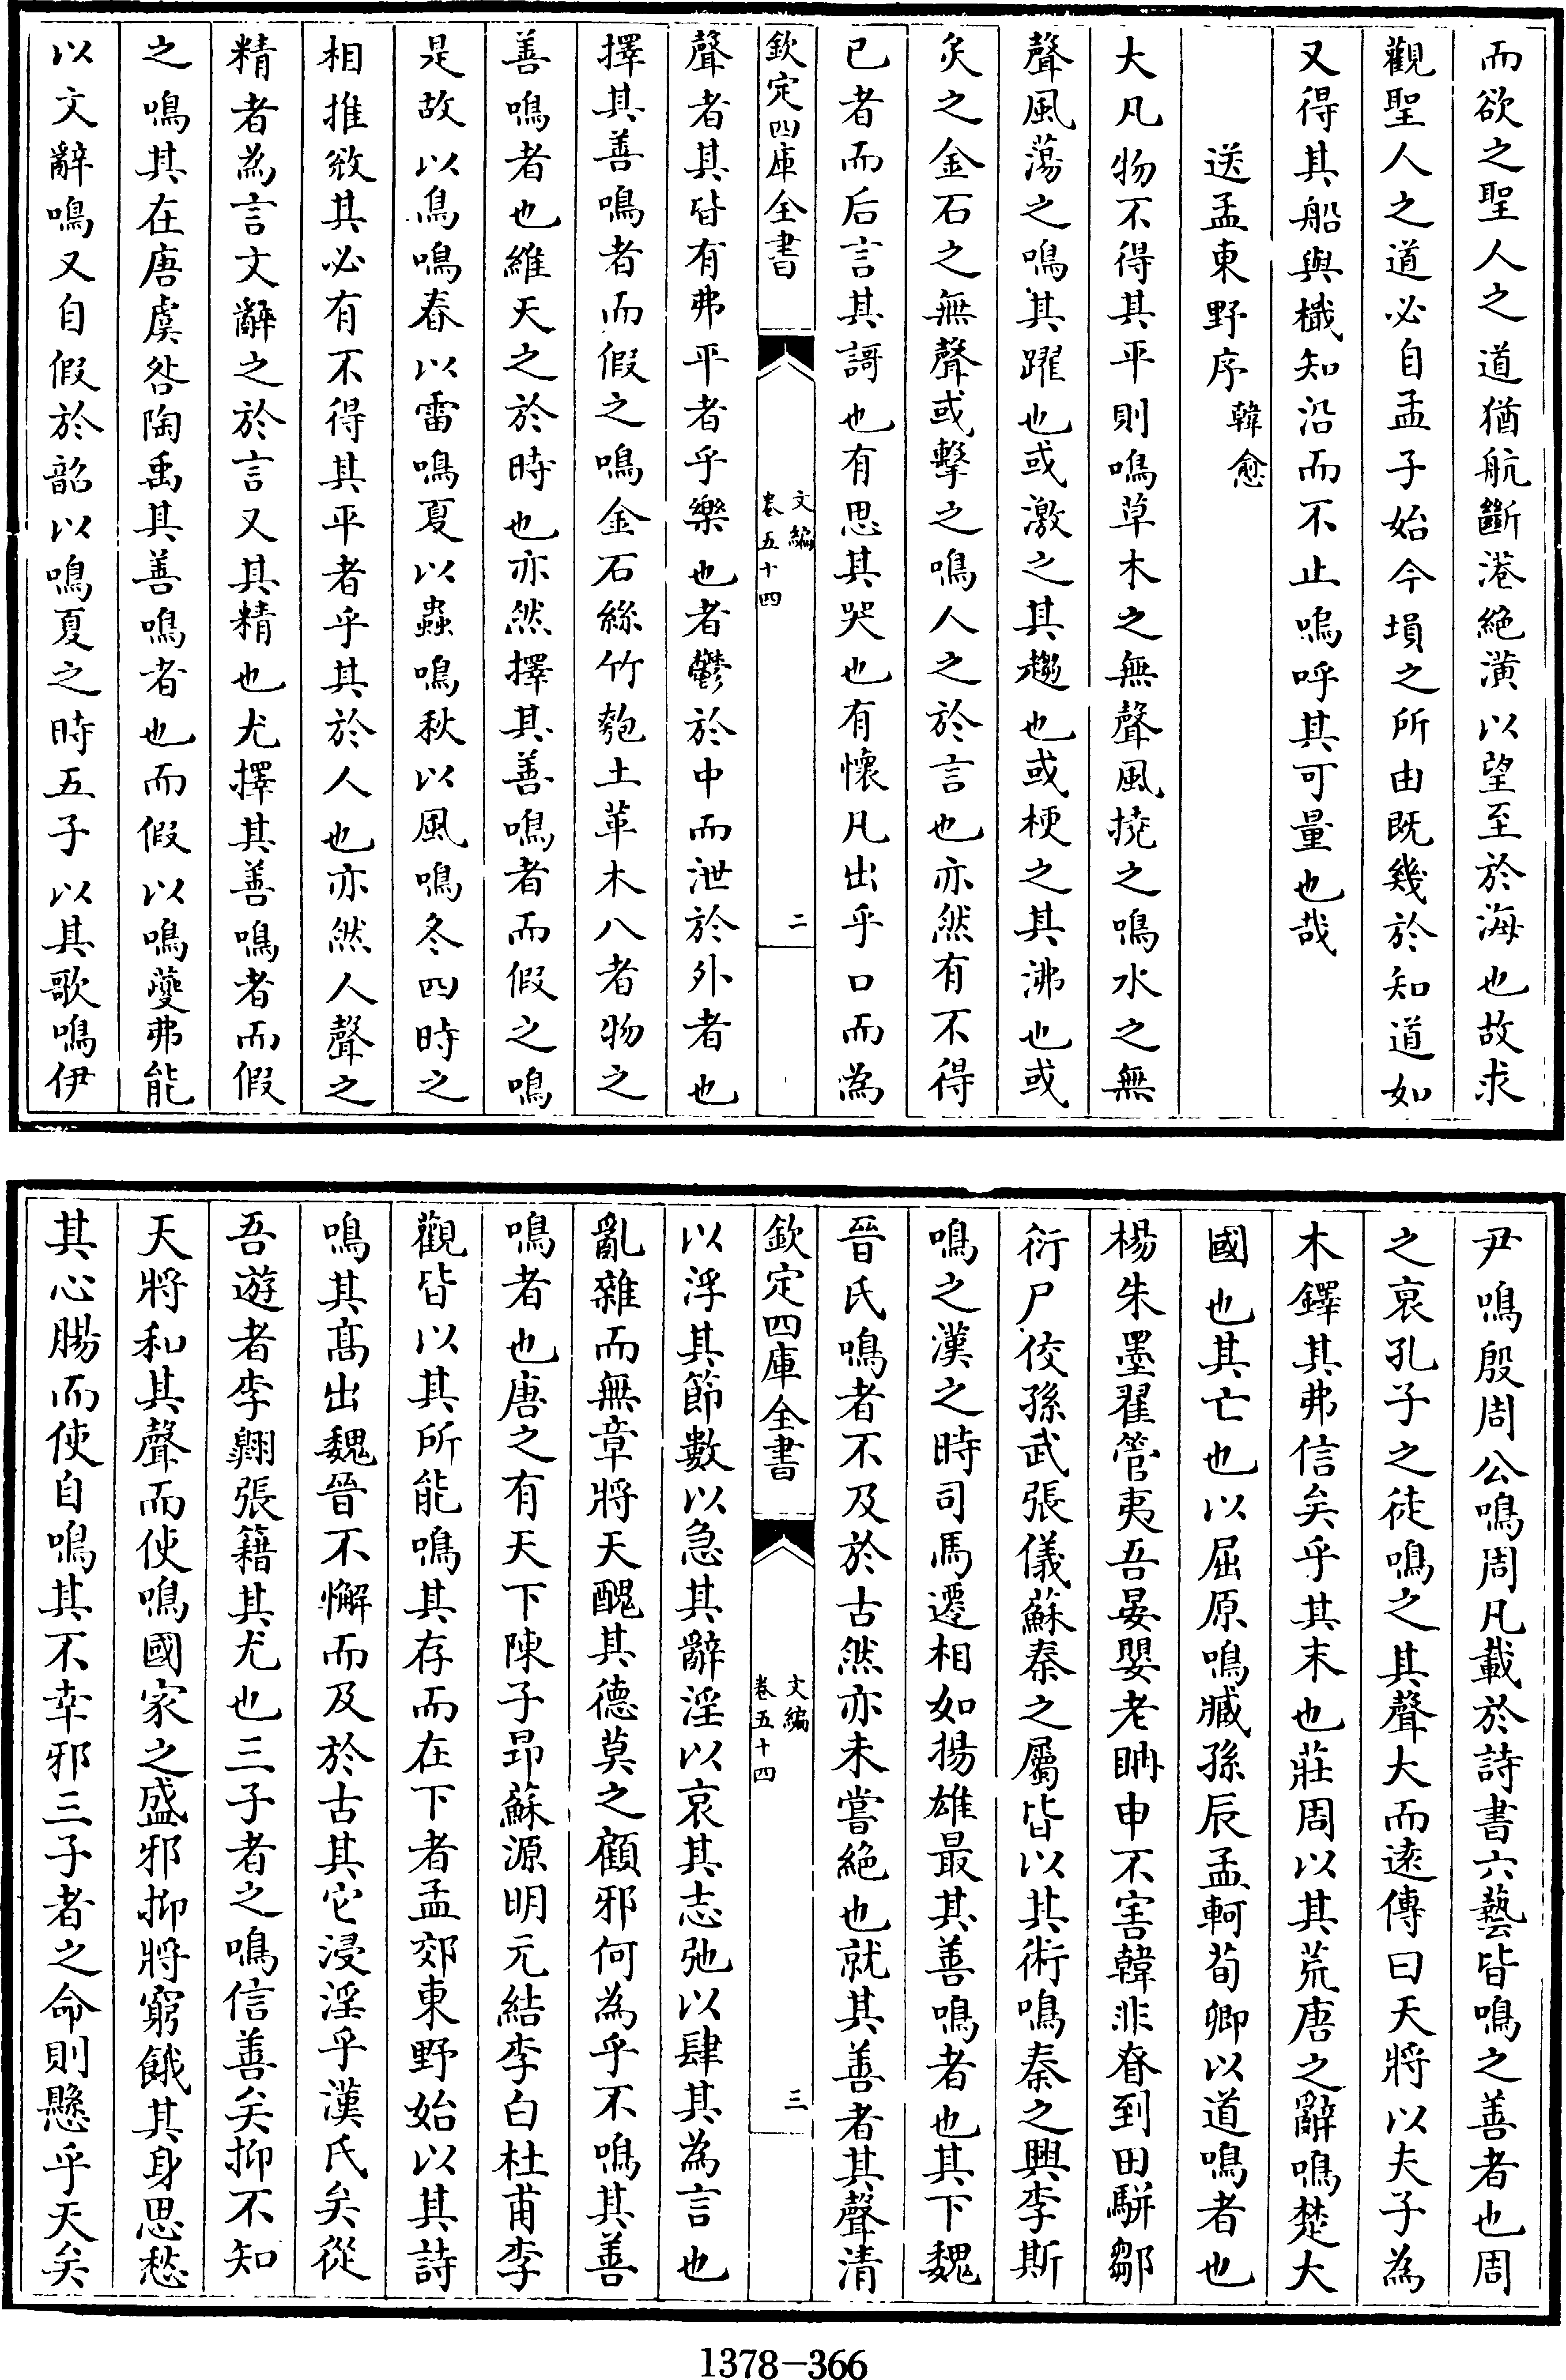 而欲之聖人之道猶航斷港絶潢以望至於海也故求
觀聖人之道必自孟子始今塤之所由既幾於知道如
又得其船與檝知沿而不止嗚呼其可量也哉
送孟東野序韓愈
大凡物不得其平則鳴草木之無聲風撓之鳴水之無
聲風蕩之鳴其躍也或激之其趨也或梗之其沸也或
炙之金石之無聲或擊之鳴人之於言也亦然有不得
已者而后言其謌也有思其哭也有懷凡出乎口而為
欽定四庫全書
文編
卷五十四
二
聲者其皆有弗平者乎樂也者鬱於中而泄於外者也
擇其善鳴者而假之鳴金石絲竹匏土革木八者物之
善鳴者也維天之於時也亦然擇其善鳴者而假之鳴
是故以鳥鳴春以雷鳴夏以蟲鳴秋以風鳴冬四時之
相推敓其必有不得其平者乎其於人也亦然人聲之
精者為言文辭之於言又其精也尤擇其善鳴者而假
之鳴其在唐虞咎陶禹其善鳴者也而假以鳴夔弗能
以文辭鳴又自假於韶以鳴夏之時五子以其歌鳴伊
尹鳴殷周公鳴周凡載於詩書六藝皆鳴之善者也周
之哀孔子之徒鳴之其聲大而遠傳曰天將以夫子為
木鐸其弗信矣乎其末也莊周以其荒唐之辭鳴楚大
國也其亡也以屈原鳴臧孫辰孟軻荀卿以道鳴者也
楊朱墨翟管夷吾晏嬰老聃申不害韓非眘到田駢鄒
衍尸佼孫武張儀蘇秦之屬皆以其術鳴秦之興李斯
鳴之漢之時司馬遷相如揚雄最其善鳴者也其下魏
晉氏鳴者不及於古然亦未嘗絶也就其善者其聲清
欽定四庫全書
文編
卷五十四
三
以浮其節數以急其辭淫以哀其志弛以肆其為言也
亂雜而無章將天醜其德莫之顧邪何為乎不鳴其善
鳴者也唐之有天下陳子昻蘇源明元結李白杜甫李
觀皆以其所能鳴其存而在下者孟郊東野始以其詩
鳴其髙出魏晉不懈而及於古其它浸淫乎漢氏矣從
吾遊者李翺張籍其尤也三子者之鳴信善矣抑不知
天將和其聲而使鳴國家之盛邪抑將窮餓其身思愁
其心腸而使自鳴其不幸邪三子者之命則懸乎天矣
1378-366